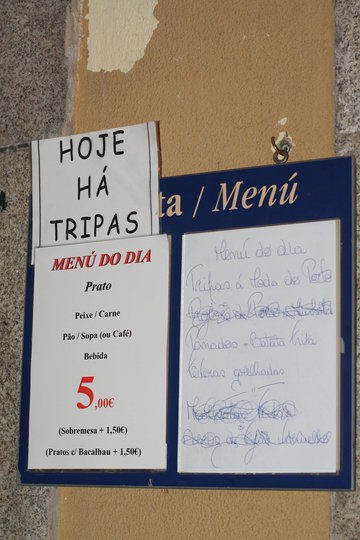 HOJE
HÁ
TRIPAS
ta / Menú
MENÚ DO DIA
Prato
Peixe / Carne
Pão / Sopa (ou Café)
Bebida
5,00€
(Sobremesa + 1,50€)
(Pratos c/ Bacalhau + 1,50€)
Menu do dia
Tripas á Moda do Porto
Panados c/ Batata frita
grelhadas